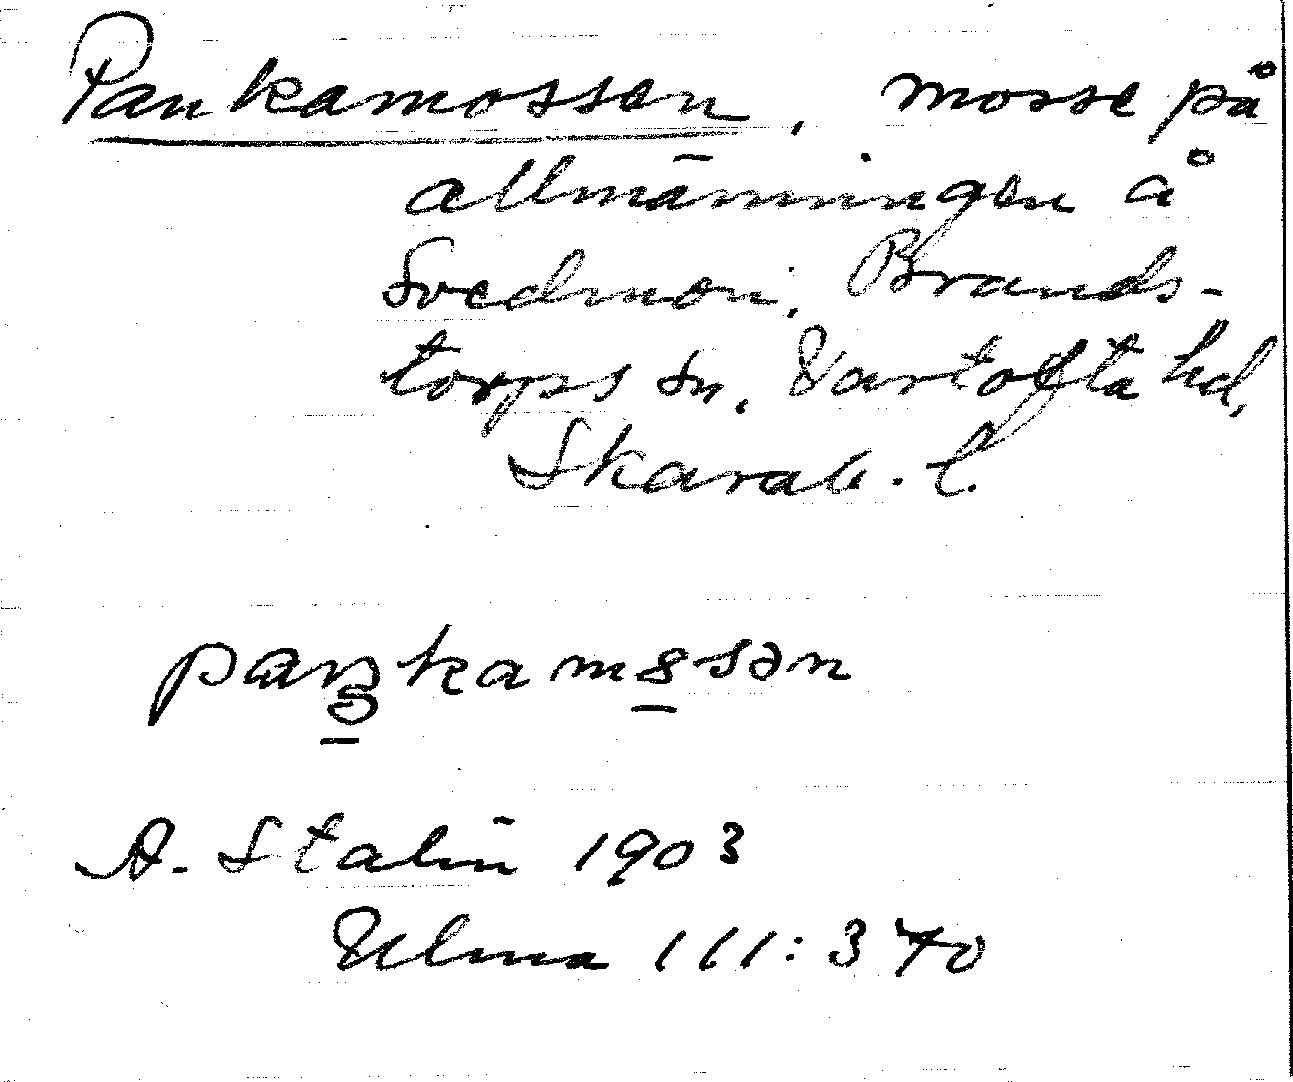 Pankamossen, mosse på
allmänningen å
Svedmon. Brands-
torps sn. Vartofta hd,
Skarab. l.
A. Stalin 1903
Ulma 111:370